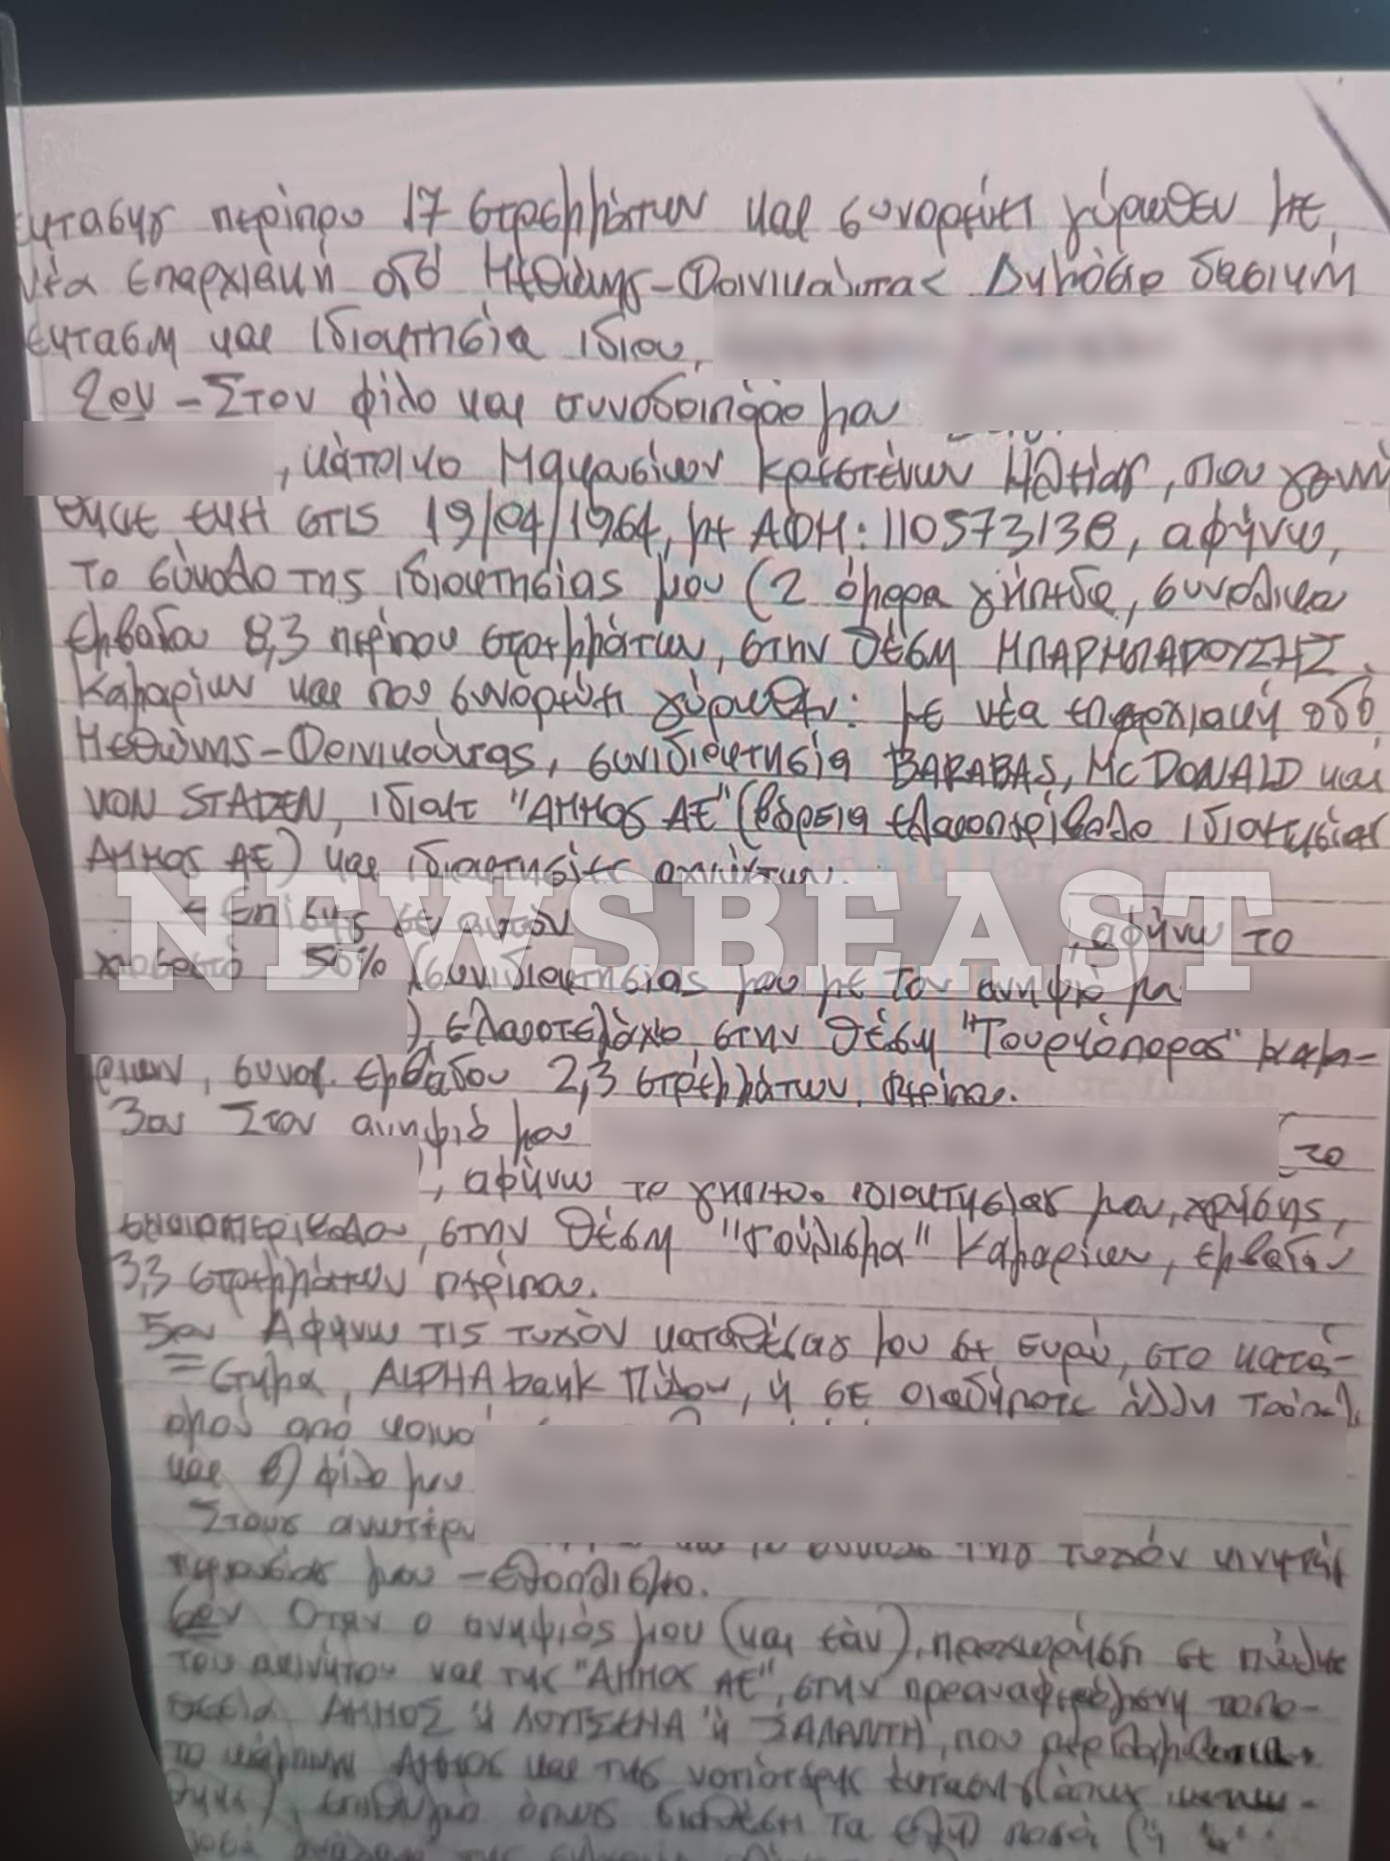 έκτασης περίπου 17 στρεμμάτων και συνορεύει γύρωθεν με
νέα επαρχιακή οδό Μεθώνης-Φοινικούντας Δημόσια δασική
έκταση και ιδιοκτησία ιδίου,
2ον - Στον φίλο και συνοδοιπόρο μου
, κάτοικο Μακρισίων Κρεστένων Ηλείας, που
εκεί στις 19/04/1964, με ΑΦΜ: 110573138, αφήνω,
το σύνολο της ιδιοκτησίας μου (2 όμορα γήπεδα, συνολικά
εμβαδού 8,3 περίπου στρεμμάτων, στην θέση ΜΠΑΡΜΠΑΡΟΥΣΗΣ
Καμαρίων και που συνορεύει γύρωθεν: με νέα επαρχιακή οδό
Μεθώνης-Φοινικούντας, συνιδιοκτησία BARABAS, McDONALD και
VON STADEN, ιδιοκτ "ΑΜΜΟΣ ΑΕ" (βόρεια ελαιοπερίβολο ιδιοκτησίας
ΑΜΜΟΣ ΑΕ) και ιδιοκτησίες αγνώστων.
NEWSBEAST
- Επίσης σε αυτόν , αφήνω το
ποσοστό 50% (συνιδιοκτησίας μου με τον ανηψιό μου
), ελαιοτεμάχιο στην θέση "Τουρκόπορος" Καμα-
ρίων, συνολ. εμβαδού 2,3 στρεμμάτων, περίπου.
3ον Στον ανηψιό μου (το
), αφήνω το γήπεδο ιδιοκτησίας μου, χρήσης,
ελαιοπερίβολου, στην θέση "Τούλισμα" Καμαρίων, εμβαδού
3,3 στρεμμάτων περίπου.
5ον Αφήνω τις τυχόν καταθέσεις μου σε ευρώ, στο κατά-
στημα, ALPHA bank Πύλου, ή σε οιαδήποτε άλλη τράπεζ
από κοινού
και β) φίλο μου
Στους ανωτέρω το σύνολο της τυχόν κινητής
περιουσίας μου - εξοπλισμό.
6ον Όταν ο ανηψιός μου (και εάν), προχωρήση σε πώληση
του ακινήτου και της "ΑΜΜΟΣ ΑΕ", στην προαναφερόμενη τοπο-
θεσία ΑΜΜΟΣ ή ΛΟΥΤΣΕΝΑ ή ΣΑΛΑΝΤΗ, που περιλαμβάνει
το κάμπινγκ ΑΜΜΟΣ και της νοτιότερης έκτασης
επιθυμώ όπως διαθέση τα εξής ποσά (ή